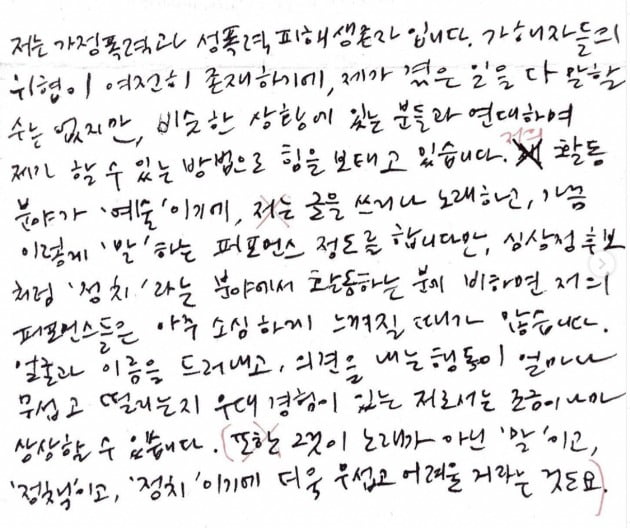 저는 가정폭력과 성폭력 피해생존자 입니다. 가해자들의
위협이 여전히 존재하기에, 제가 겪은 일을 다 말할
수는 없지만, 비슷한 상황에 있는 분들과 연대하여
제가 할 수 있는 방법으로 힘을 보태고 있습니다. 저의 활동
분야가 '예술'이기에, 저는 글을 쓰거나 노래하고, 가끔
이렇게 '말'하는 퍼포먼스 정도를 합니다만, 심상정 후보
처럼 '정치'라는 분야에서 활동하는 분에 비하면 저의
퍼포먼스들은 아주 소심하게 느껴질 때가 많습니다.
얼굴과 이름을 드러내고, 의견을 내는 행동이 얼마나
무섭고 떨리는지 무대 경험이 있는 저로서는 조금이나마
상상할 수 있습니다. (또한 그것이 노래가 아닌 '말'이고,
'정책'이고, '정치'이기에 더욱 무섭고 어려울 거라는 것도요.)